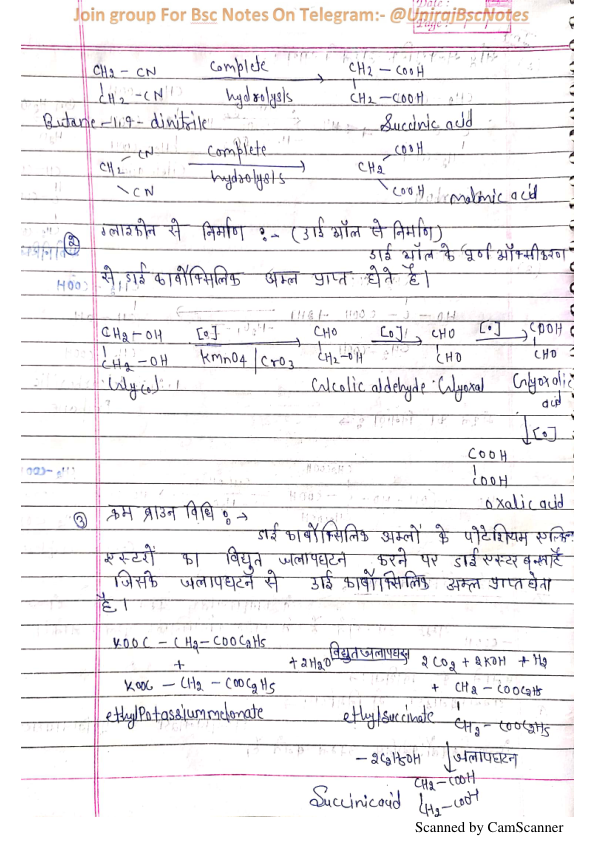 Join group For Bsc Notes On Telegram:- @UnirajBscNotes
CH2 – CN complete CH2 – COOH
CH2 – CN hydrolysis CH2 – COOH
Butane –1,4– dinitrile Succinic acid
CN complete COOH
CH2 CH2
CN hydrolysis COOH malonic acid
② ग्लाइकोल से निर्माण :– (डाई ऑल से निर्माण)
डाई ऑल के पूर्ण ऑक्सीकरण
से, डाई कार्बोक्सिलिक अम्ल प्राप्त होते है।
CH2–OH [O] CHO [O] CHO [O] COOH
CH2–OH KmnO4 | CrO3 CH2–OH CHO CHO
Glycol Glcolic aldehyde Glyoxal Glyoxolic
acid
[O]
COOH
COOH
oxalic acid
③ क्रम ब्राउन विधि :→
डाई कार्बोक्सिलिक अम्लों के पोटेशियम एल्किल
एस्टरों का विद्युत जलापघटन करने पर डाई एस्टर बनता है
जिसके जलापघटन से डाई कार्बोक्सिलिक अम्ल प्राप्त होता
है।
KOOC – CH2 – COOC2H5
+ + 2H2O विद्युतजलापघटन 2CO2 + 2KOH + H2
KOOC – CH2 – COOC2H5 + CH2 – COOC2H5
ethylPotassiummelonate ethylsuccinate CH2 – COOC2H5
– 2C2H5OH जलापघटन
CH2–COOH
Succinicacid CH2–COOH
Scanned by CamScanner